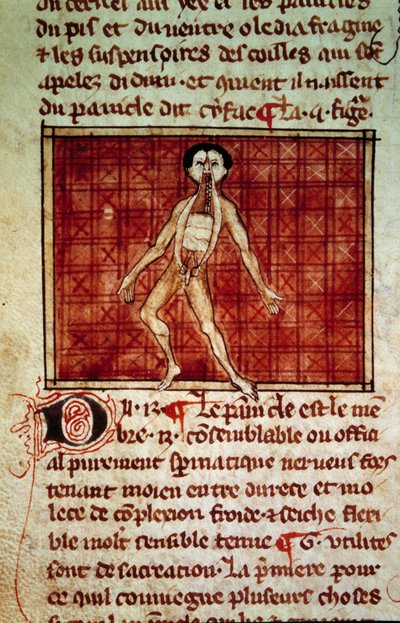 du cervel aux yex et les panicles
du pis et du ventre o le diafragme
& les suspensoires des coilles qui sōt
apelez didimi · et quient il nissent
du panicle dit cyfac ¶ La · 4 · figͬe ·
Du · 12 · ¶ Le panicle est le mē
bre · 12 · cōsemblable ou offici
al purement spermatique nerveus fors
tenant moien entre durece et mo
lece de cōplexion froide · & seiche flexi
ble molt sensible tenue ¶ 6 · utilites
sont de sa creacion · La pͥmiere pour
ce quil conviegne plusieurs choses